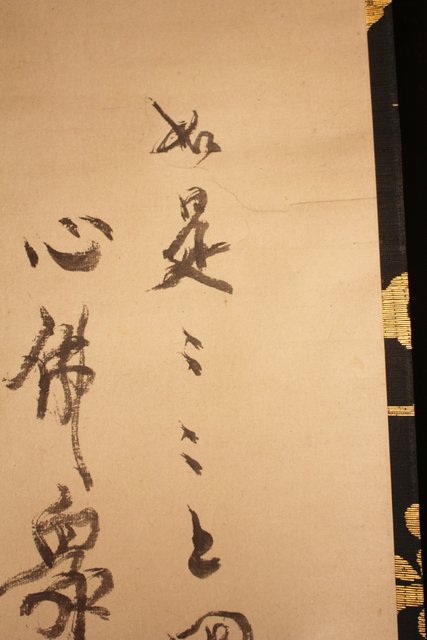 如是〻〻と
心佛衆